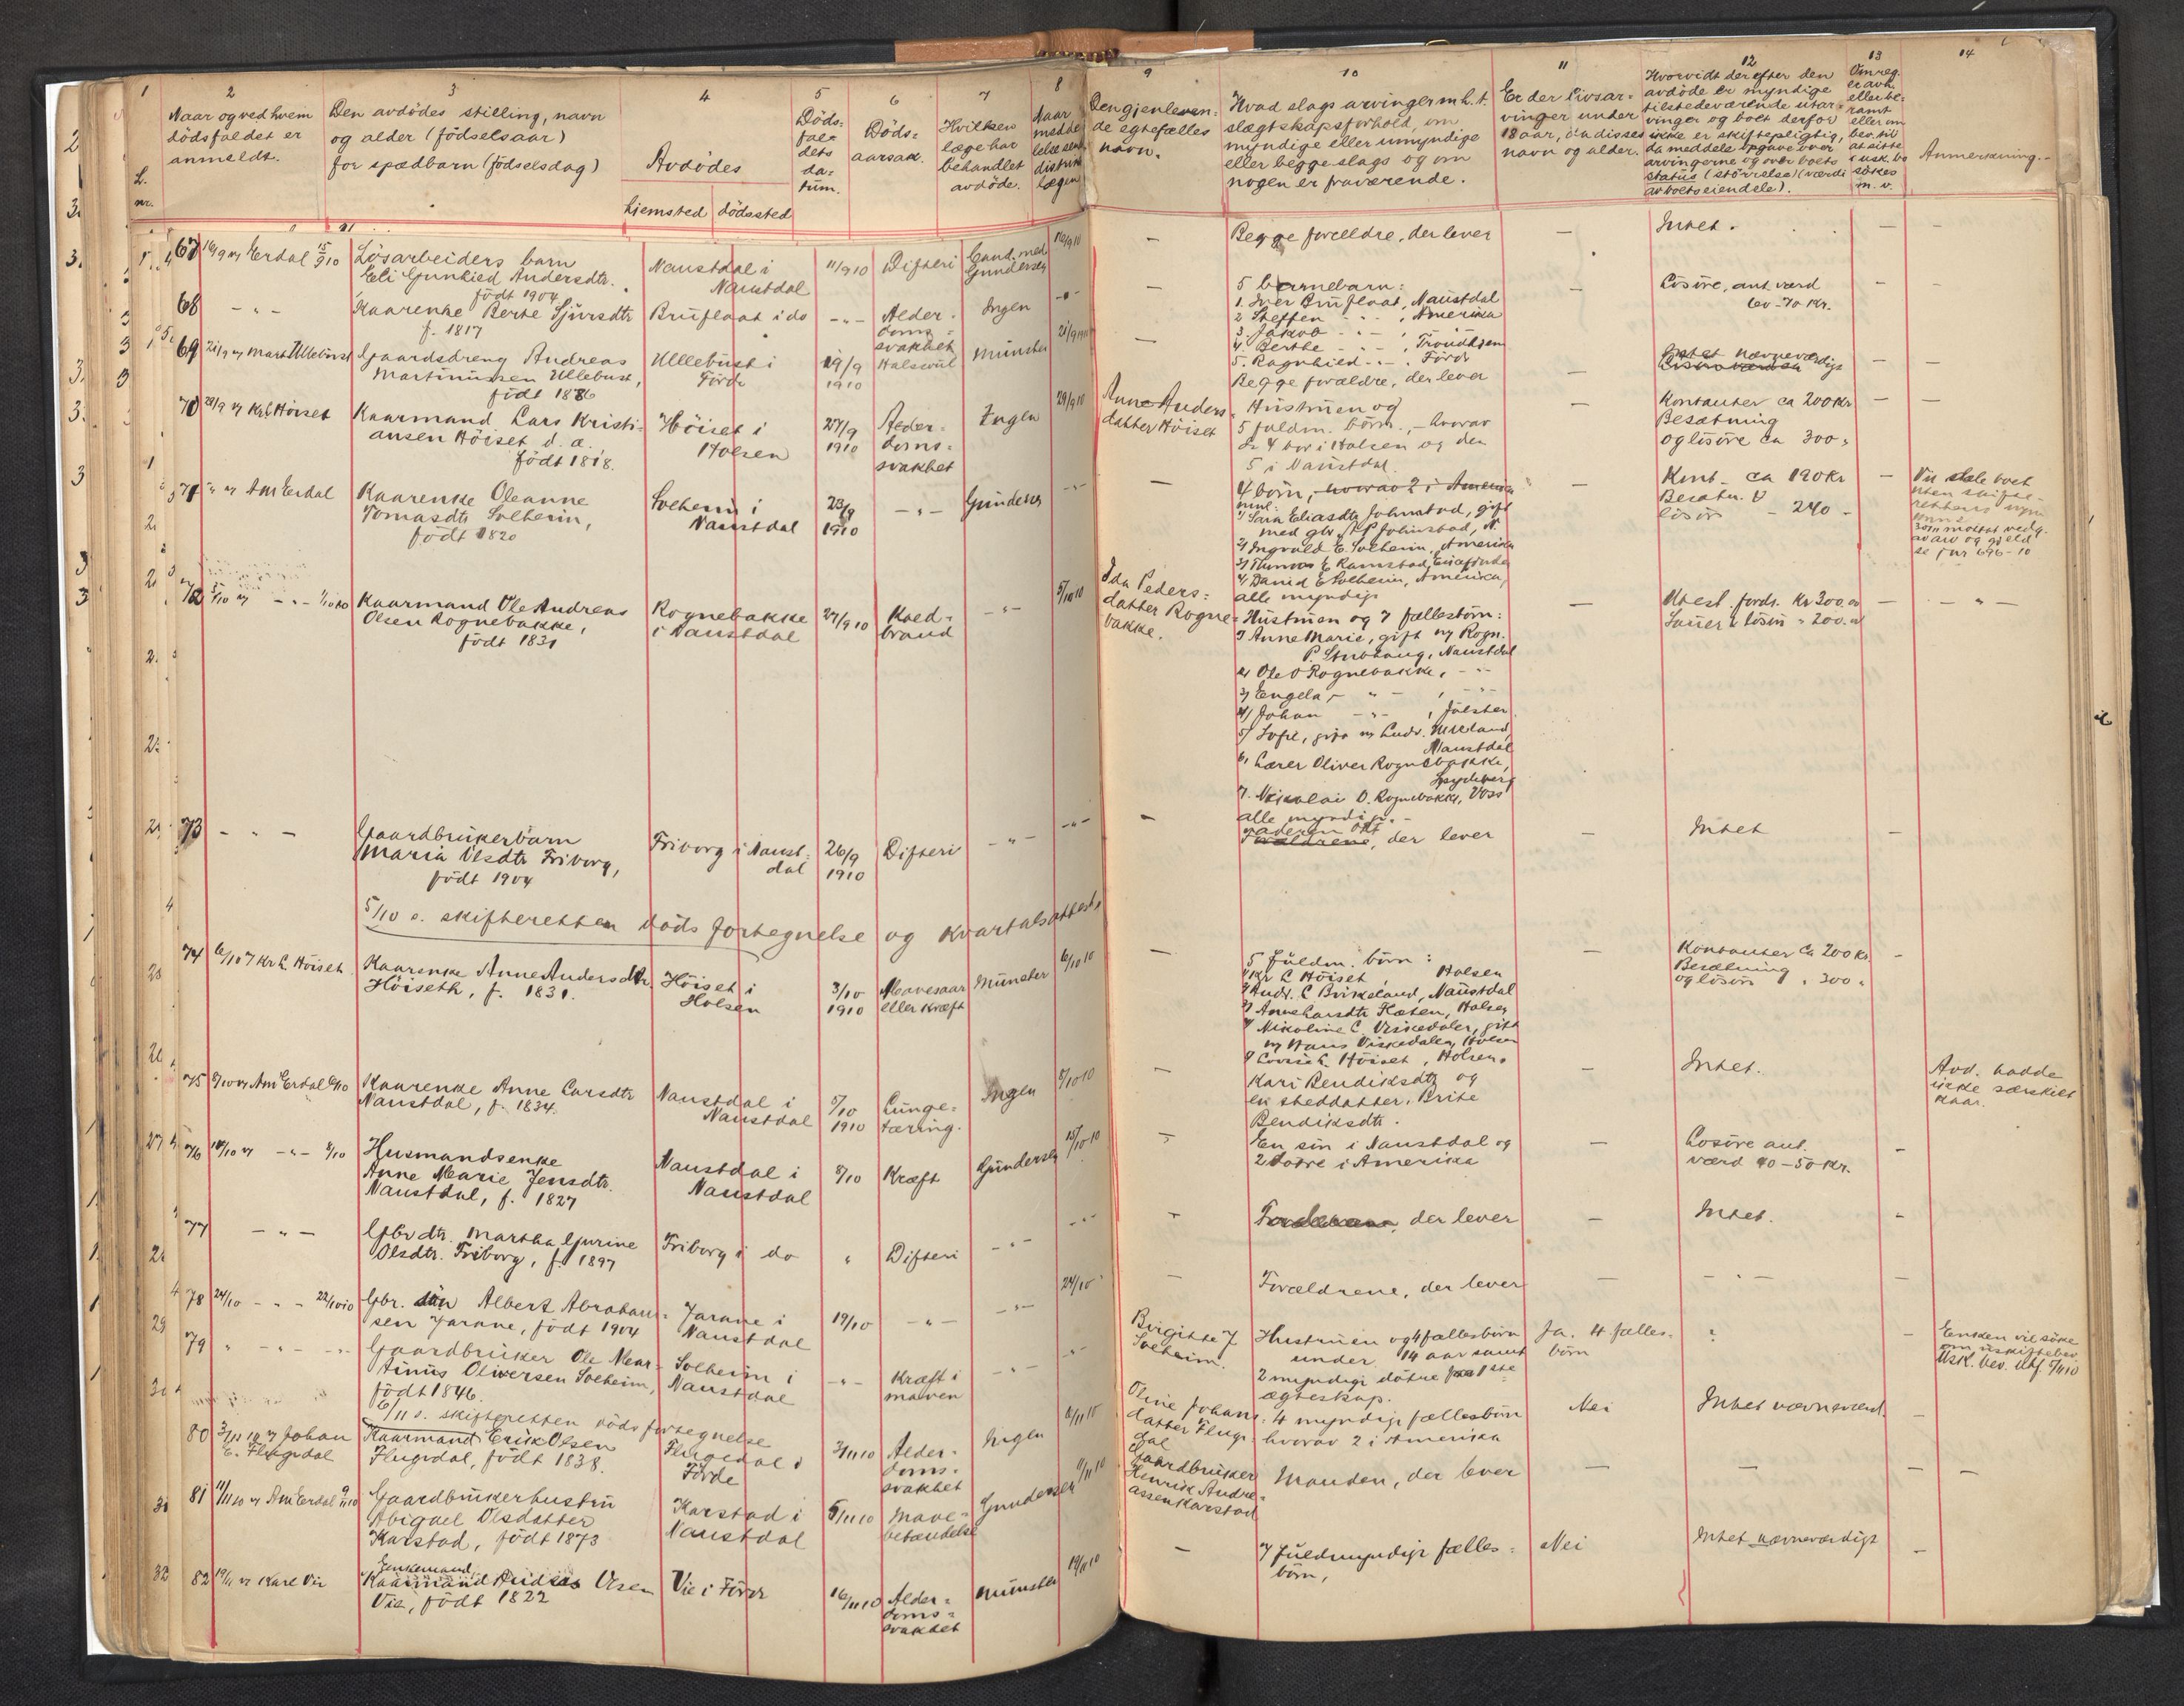 1
2
Naar og ved hvem
dödsfaldet er
anmeldt.
L.
nr.
3
Den avdödes stilling, navn
og alder (födselsaar)
for spædbarn (födselsdag)
4
Avdödes
hjemsted dödssted
5
Döds=
fal=
dets
da=
tum.
6
Döds=
aarsak.
7
Hvilken
læge har
behandlet
avdöde.
8
Naar
medde
lelse sendt
distrikts
lægen
9
Den gjenleven=
de egtefælles
navn.
10
Hvad slags arvinger m.h.t.
slægtskapsforhold, om
myndige eller umyndige
eller begge slags og om
nogen er fraværende.
11
Er der livsar=
vinger under
18 aar, da disses
navn og alder.
12
Hvorvidt der efter den
avdöde er myndige
tilstedeværende utar=
vinger og boet derfor
ikke er skiftepligtig,
da meddele opgave over
arvingerne og over boets
status (störrelse) (værdi
av boets eiendele).
13
Om reg.
er avh.
eller be=
ramt
eller om
bev. til
at sitte
i usk. bo
sökes
m. v.
14
Anmerkning.-
67 16/9 v Erdal 15/9 10
Lösarbeiders barn
Eli Gunhild Andersdtr.
född 1904
Naustdal i
Naustdal
11/9 10
Difteri
Cand. med
Gundersen
16/9 10
—
Begge forældre, der lever
—
Intet.
—
—
68 - " -
Kaarenke Berte Sjursdtr
f. 1817
Bruflaat i do
- " -
Alder=
doms=
svakhet
Ingen
- " -
—
5 barnebarn:
1. Iver Bruflaat, Naustdal
2 Steffen - " - , Amerika
3. Jakob - " - , "
4. Berthe - " - , Trondhjem
5. Ragnhild - " - , Förde
—
Lösöre, ant. værd
60-70 kr.
—
—
69 21/9 v Mart Ullebust
Gaardsdreng Andreas
Martinussen Ullebust,
född 1886
Ullebust i
Förde
19/9
1910
Halsonde
Münster
21/9 1910
—
Begge forældre, der lever
—
Intet nævneværdigt
—
—
70 28/9 v Kr L Höiset
Kaarmand Lars Kristi=
ansen Höiset d. æ.
född 1818.
Höiset i
Holsen
27/9
1910
Alder=
doms=
svakhet
Ingen
29/9 10
Anne Anders=
datter Höiset
Hustruen og
5 fuldm. börn, - hvorav
de 4 bor i Holsen og den
5 i Naustdal.
—
Kontanter ca 200 kr
Besætning
og lösöre ca 300 "
—
—
71 " v A M Erdal
Kaarenke Oleanne
Tomasdtr Solheim,
född 1820
Solheim i
Naustdal
23/9
1910
- " -
Gundersen
- " -
—
4 börn, hvorav 2 i Amerika
nml:
1/ Sara Eliasdtr Johnstad, gift
2/ Ingvald E. Solheim, Amerika
4/ Daniel E Solheim, Amerika,
alle myndige
Kont. ca 190 kr
Besætn. &
lösöre - 240 -
—
Vil dele boet
uten skifte-
rettens
se jnr 696-10
72 5/10 v - " - 1/10 10
Kaarmand Ole Andreas
Olsen Rognebakke,
född 1831
Rognebakke
i Naustdal
27/9 10
Kold=
brand
- " -
5/10 10
Ida Peders=
datter Rogne=
bakke.
Hustruen og 7 fællesbörn:
1/ Anne Marie, gift m Rogn.
P. Stubhaug, Naustdal
2/ Ole O Rognebakke, - " -
3/ Engela, - " - , - " -
4/ Johan - " - , Jölster
5/ Sofie, gift m Ludv. Mreland,
Naustdal
6, Lærer Oliver Rognebakke,
Spydeberg
7. Nikolai O. Rognebakke, Voss
alle myndige.-
—
Utest. fordr. Kr 300.00
Sauer & lösöre " 200.00
—
- " -
73 - " -
Gaardbrukerbarn
Maria Olsdtr Friborg,
född 1904
Friborg i Naust=
dal
26/9
1910
Difteri
- " -
- " -
—
Forældrene, der lever
—
Intet
—
5/10 s. skifteretten döds fortegnelse og kvartalsattest.
74 6/10 v Kr L. Höiset
Kaarenke Anne Andersdtr.
Höiseth, f. 1831.
Höiset i
Holsen
3/10
1910
Mavesaar
eller kræft
Münster
6/10 10
—
5 fuldm. börn:
1/ Kr L Höiset, Holsen
2/ Andr. L Birkeland, Naustdal
3/ Anne Larsdtr Flaten, Holsen
4/ Nikoline L. Viskedalen, gift
m Hans Viskedalen, Holsen
5/ Lovise L Höiset, Holsen.
—
Kontanter ca 200 kr.
Besætning
og lösöre " 300 "
—
75 8/10 v A M Erdal 6/10
Kaarenke Anne Larsdtr
Naustdal, f. 1834.
Naustdal i
Naustdal
5/10
1910
Lunge=
tæring.
Ingen
8/10 10
—
Kari Bendiksdtr og
en steddatter, Brite
Bendiksdtr.
—
Intet.
Avd. hadde
ikke særskilt
kaar.
76 10/10 v - " - 8/10
Husmandsenke
Anne Marie Jensdtr.
Naustdal, f. 1827
Naustdal i
Naustdal
8/10
Kræft
Gundersen
15/10 10
—
En sön i Naustdal og
2 döttre i Amerika
—
Lösöre ant.
værd 40-50 kr.
—
77 - " -
Gbr dtr. Martha Gurine
Olsdtr. Friborg, f. 1897
Friborg i do
"
Difteri
- " -
- " -
—
Forældrene, der lever
—
Intet.
—
78 24/10 - " - 22/10 10
Gbr. sön Albert Abraham=
sen Jarane, född 1904
Jarane i
Naustdal
19/10
- " -
- " -
24/10
—
Forældrene, der lever
—
- " -
79 " - " -
Gaardbruker Ole Mar=
tinus Oliversen Solheim,
född 1846.
Solheim i
Naustdal
- " -
Kræft i
maven
- " -
- " -
Birgitte J
Solheim.
Hustruen og 4 fællesbörn
under 14 aar samt
2 myndige dötre fra 1ste
ægteskap.
Ja. 4 fælles=
börn
?
—
Enken vil söke
om uskiftebev.
Usk. bev. utf. 5/11 10
6/11 s. skifteretten dödsfortegnelse
80 3/11 10 v Johan
E. Flugedal
Kaarmand Erik Olsen
Flugedal, född 1838.
Flugedal i
Förde
2/11 10
Alder=
doms=
svakhet
Ingen
6/11 10
Oline Johans=
datter Fluge=
dal
4 myndige fællesbörn
hvorav 2 i Amerika
Nei
Intet nævneværd.
—
81 11/11 10 v A M Erdal 9/11 10
Gaardbrukerhustru
Abigael Olsdatter
Karstad, född 1873
Karstad i
Naustdal
5/11 10
Mave=
betændelse
Gundersen
11/11 10
Gaardbruker
Henrik Andre=
assen Karstad
Manden, der lever
—
—
—
—
82 19/11 v Karl Vie
Enkemand
Kaarmand Andreas Olsen
Vie, född 1822
Vie i Förde
16/11 10
Alder=
doms=
svakhet
Münster
19/11 10
—
7 fuldmyndige fælles=
börn,
Nei
Intet nævneværdigt
—